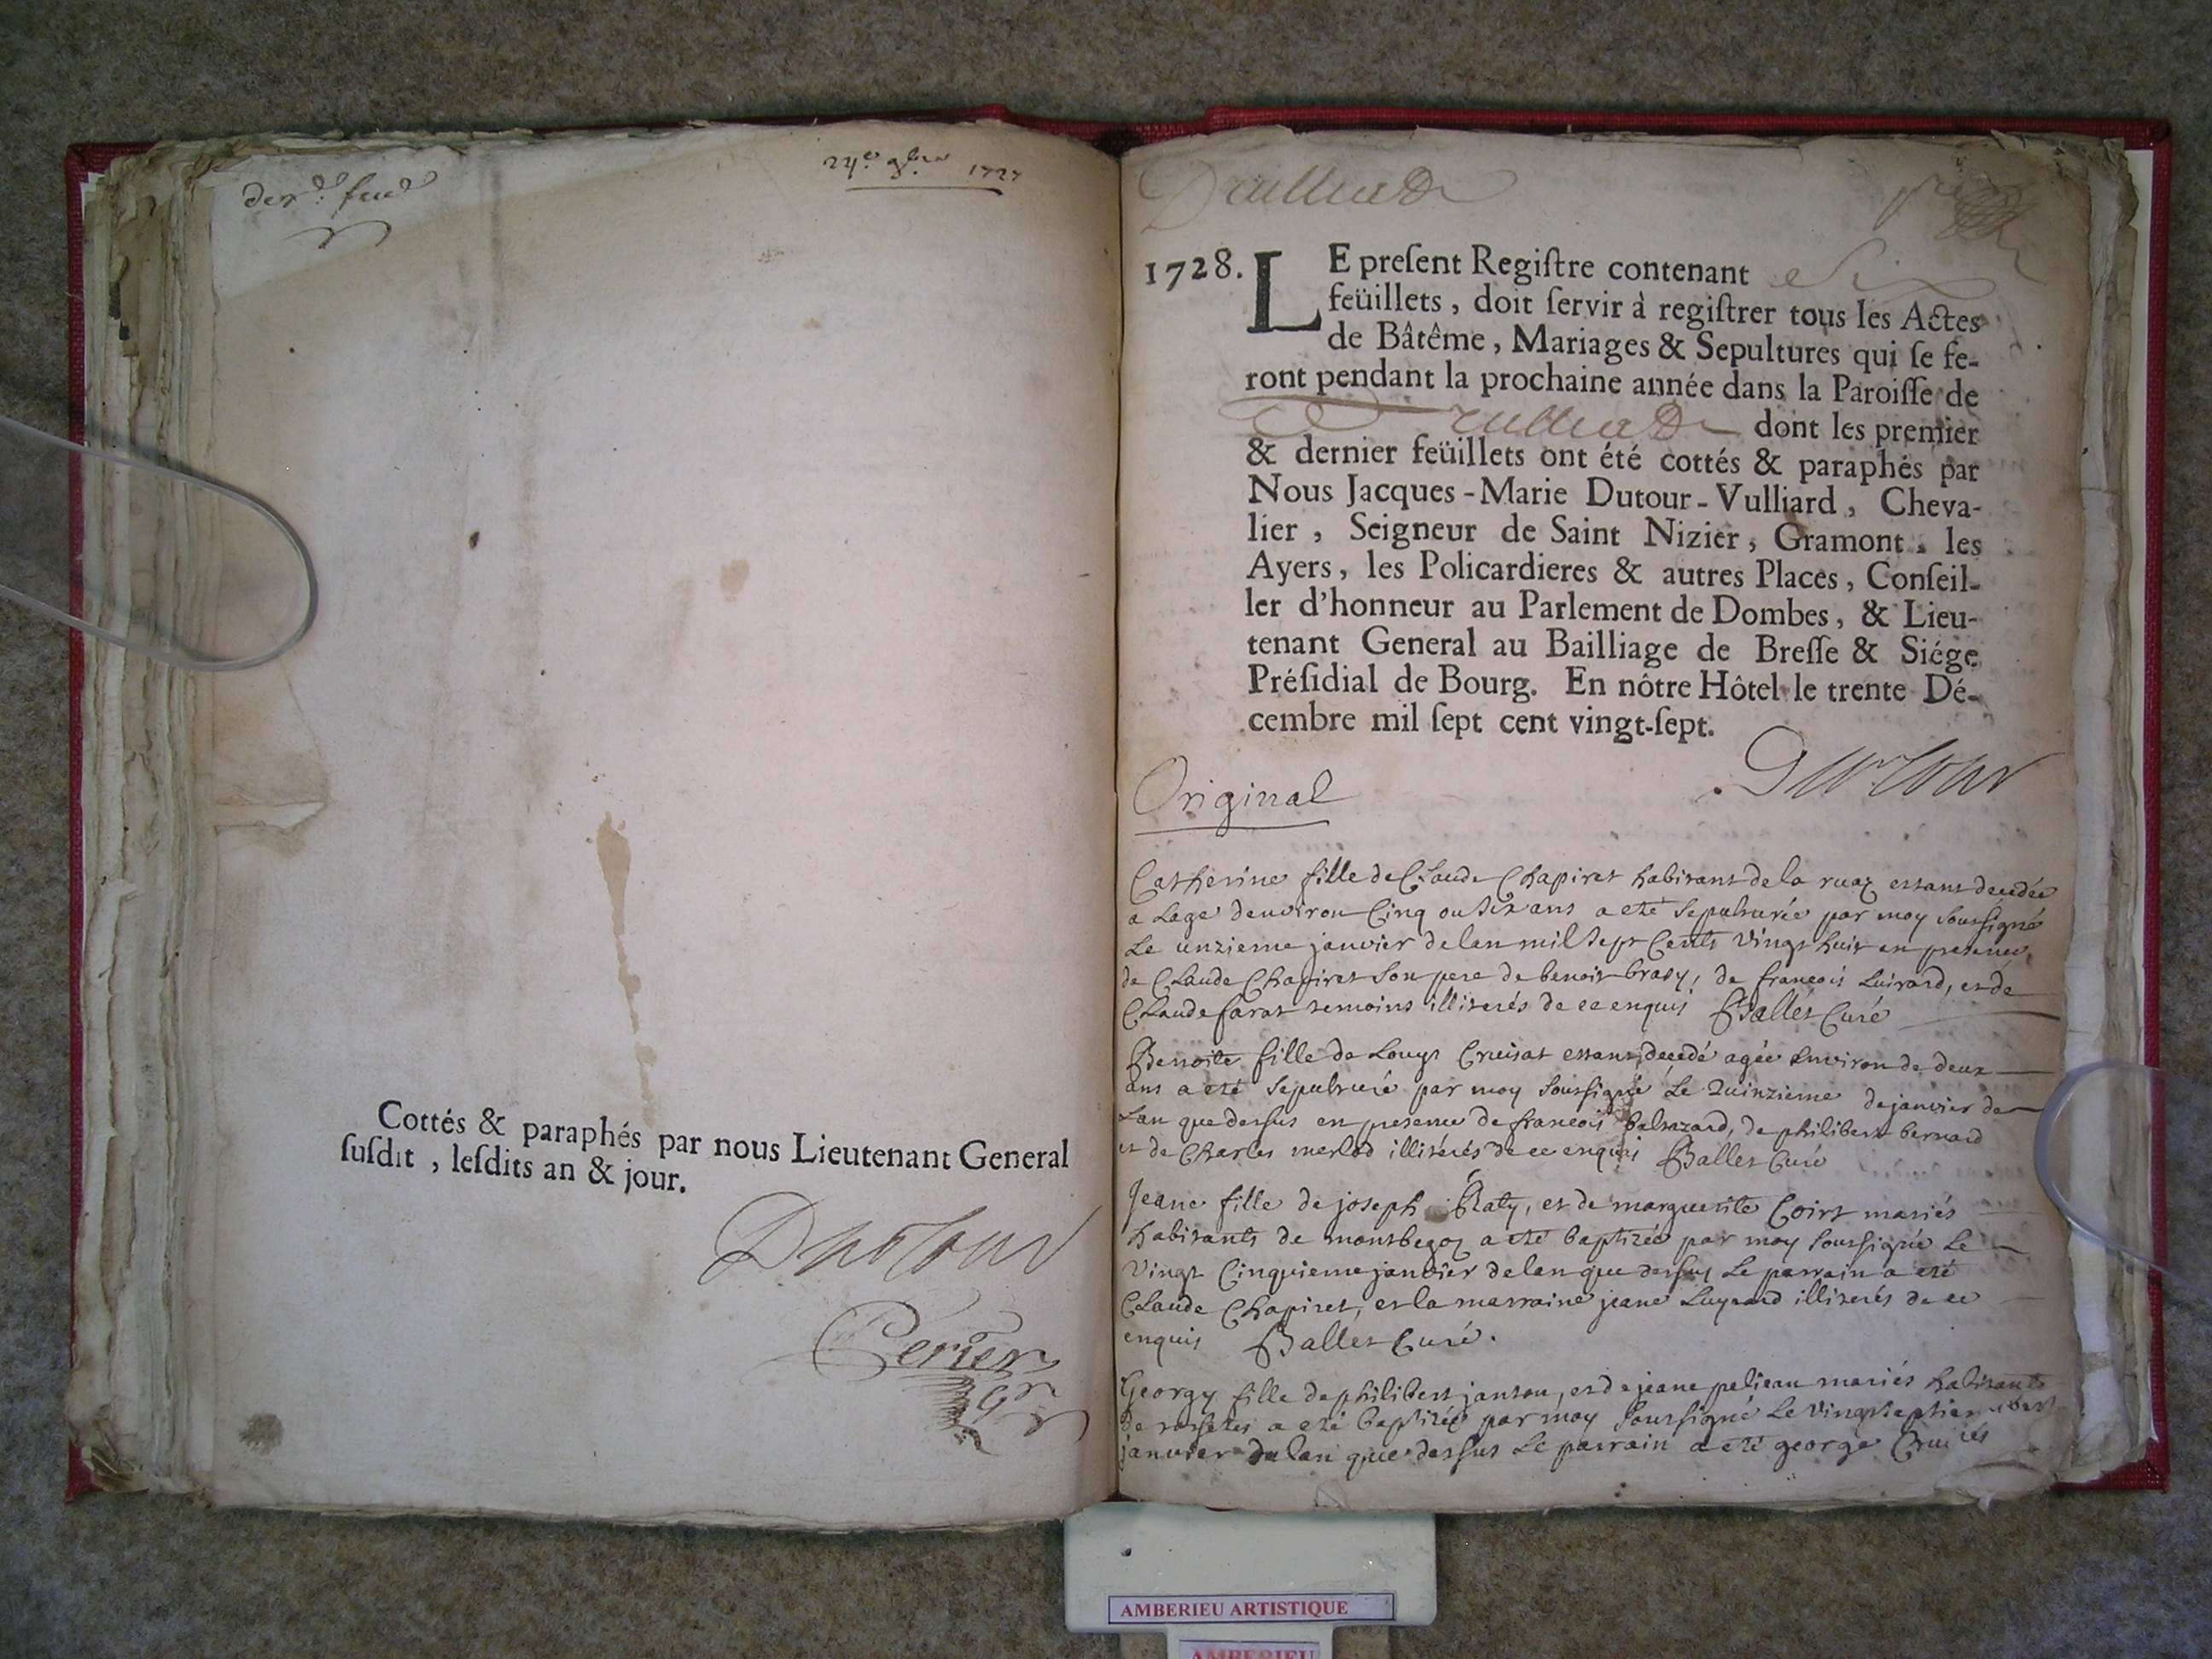 1727
Cottés & paraphés par nous Lieutenant General
ſuſdit, leſdits an & jour.
Dutour
Perier
Druilliad
1728.
LE preſent Regiſtre contenant Six
feüillets, doit ſervir à regiſtrer tous les Actes
de Bâtême, Mariages & Sepultures qui ſe fe-
ront pendant la prochaine année dans la Paroiſſe de
dont les premier
& dernier feüillets ont été cottés & paraphés par
Nous Jacques-Marie Dutour-Vulliard, Cheva-
lier, Seigneur de Saint Nizier, Gramont, les
Ayers, les Policardieres & autres Places, Conſeil-
ler d'honneur au Parlement de Dombes, & Lieu-
tenant General au Bailliage de Breſſe & Siége
Préſidial de Bourg. En nôtre Hôtel le trente Dé-
cembre mil ſept cent vingt-ſept.
Dutour
Original
Catherine fille de Claude Chapiret habitant de la ruaz estant decedée
a Lage denviron Cinq ou Six ans a eté Sepulturée par moy Soussigné
Le unzieme janvier de lan mil Sept Cents Vingt huit en presence
de Claude Chapiret Son pere de benoit de francois Luirard, et de
Claude farat temoins illiterés de ce enquis Ballet Curé
Benoite fille de Louys Cruisat estant decedé agée Environ de deux
ans a eté Sepulturé par moy Soussigné Le Quinzieme de janvier de
Lan que dessus en presence de francois baltazard, de philibert bernard
et de Charles merlod illiterés de ce enquis Ballet Curé
Jeane fille de joseph Raty, et de marguerite Coirt mariés
habitants de montbegoz a eté baptizée par moy Soussigné Le
Vingt Cinquieme janvier de lan que dessus Le parrain a eté
Claude Chapiret, et la marraine jeane Luyrard illiterés de ce
enquis Ballet Curé.
Georgy fille de philibert janton, et de jeane mariés habitants
de a eté baptizée par moy Soussigné Le
janvier de lan que dessus Le parrain a eté george
AMBERIEU ARTISTIQUE
AMBERIEU